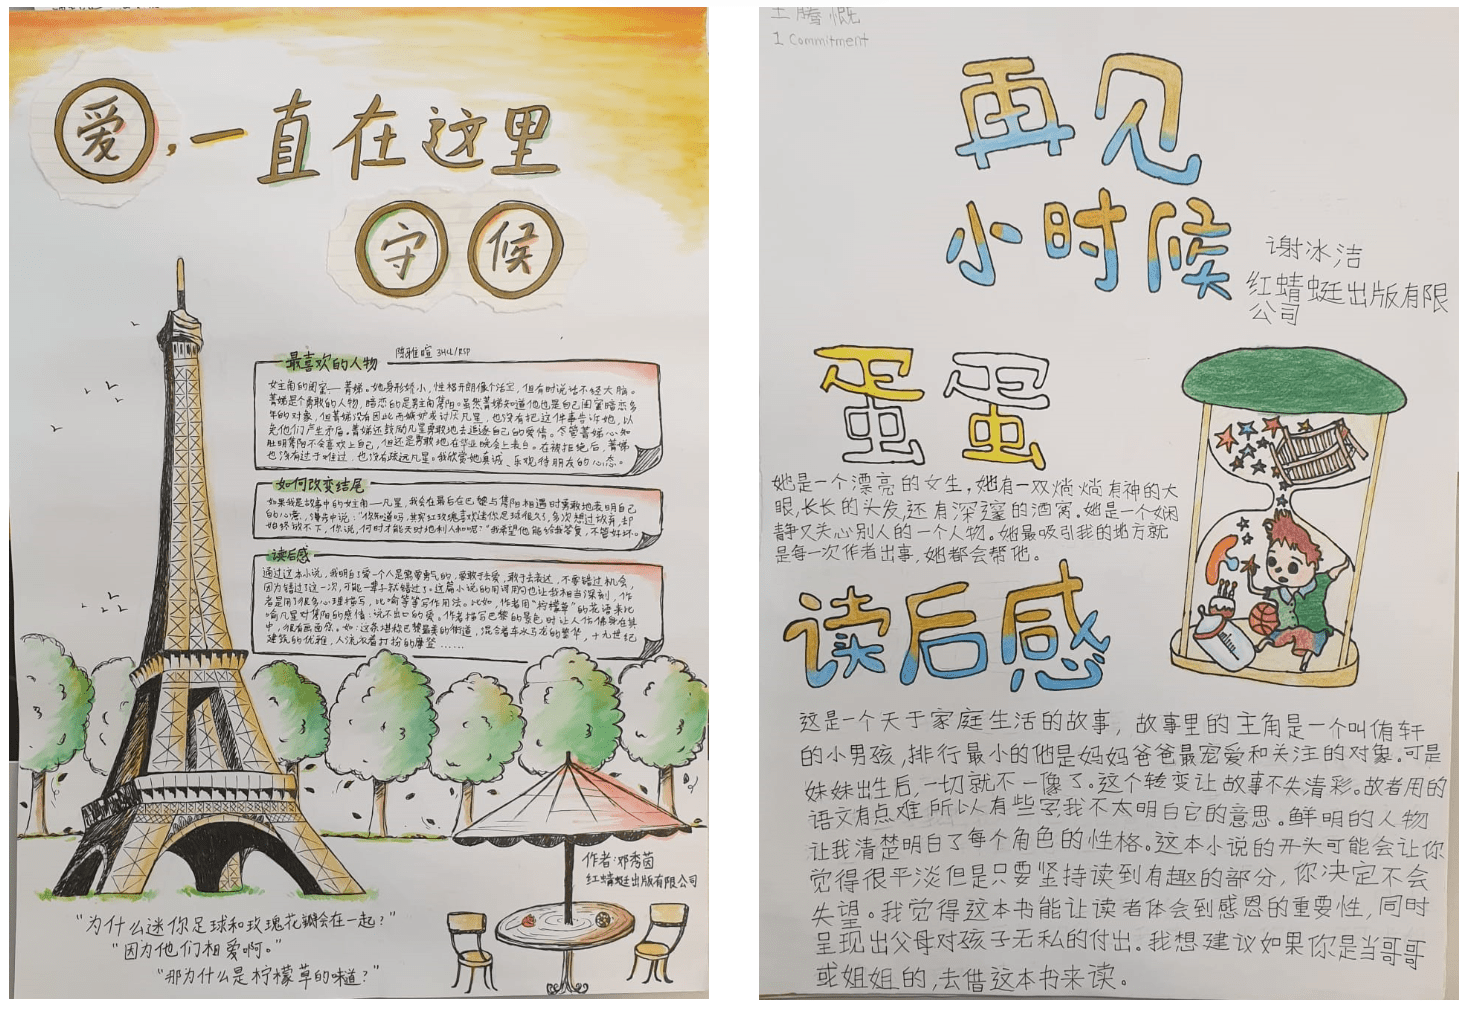 爱,一直在这里
守候
陈雅暄 3HCL/RSP
最喜欢的人物
女主角的闺密——菁娣。她身形矮小,性格开朗像个活宝,但有时说话不经大脑。
菁娣是个勇敢的人物,暗恋的是男主角隽阳。虽然菁娣知道他也是自己闺密暗恋多
年的对象,但菁娣没有因此而嫉妒或讨厌凡星,也没有把这件事告诉她,以
免他们产生矛盾。菁娣还鼓励凡星勇敢地去追逐自己的爱情。尽管菁娣心知
肚明隽阳不会喜欢上自己,但还是勇敢地在毕业晚会上表白。在被拒绝后,菁娣
也没有过于难过,也没有疏远凡星。我欣赏她真诚、乐观待朋友的心态。
如何改变结尾
如果我是故事中的女主角——凡星,我会在最后在巴黎与隽阳相遇时勇敢地表明自己
的心意,
始终放不下,你说,何时才能天时地利人和呢?”我希望他能给我答复,不管好坏。
读后感
通过这本小说,我明白了爱一个人是需要勇气的,要敢于去爱,敢于去表达,不要错过机会,
因为错过了这一次,可能一辈子就错过了。这篇小说的用词用句也让我相当深刻,作
者是用了很多心理描写,比喻等等写作用法。比如,作者用“柠檬草”的花语来比
喻凡星对隽阳的感情:说不出口的爱。作者描写巴黎的景色时让人仿佛身在其
中,很有画面感。如:这条堪称巴黎最美的街道,混合着车水马龙的繁华,十九世纪
建筑的优雅,人流衣着打扮的摩登……
作者:邓秀茵
红蜻蜓出版有限公司
“为什么迷你足球和玫瑰花瓣会在一起?”
“因为他们相爱啊。”
“那为什么是柠檬草的味道?”
王腾慨
1 Commitment
再见
小时候
谢冰洁
红蜻蜓出版有限
公司
蛋蛋
她是一个漂亮的女生,她有一双炯炯有神的大
眼,长长的头发,还有深邃的酒窝。她是一个娴
静又关心别人的一个人物。她最吸引我的地方就
是每一次作者出事,她都会帮他。
读后感
这是一个关于家庭生活的故事,故事里的主角是一个叫侑轩
的小男孩,排行最小的他是妈妈爸爸最宠爱和关注的对象。可是
妹妹出生后,一切就不一像了。这个转变让故事不失清彩。故者用的
语文有点难所以有些字我不太明白它的意思。鲜明的人物
让我清楚明白了每个角色的性格。这本小说的开头可能会让你
觉得很平淡但是只要坚持读到有趣的部分,你决定不会
失望。我觉得这本书能让读者体会到感恩的重要性,同时
呈现出父母对孩子无私的付出。我想建议如果你是当哥哥
或姐姐的,去借这本书来读。